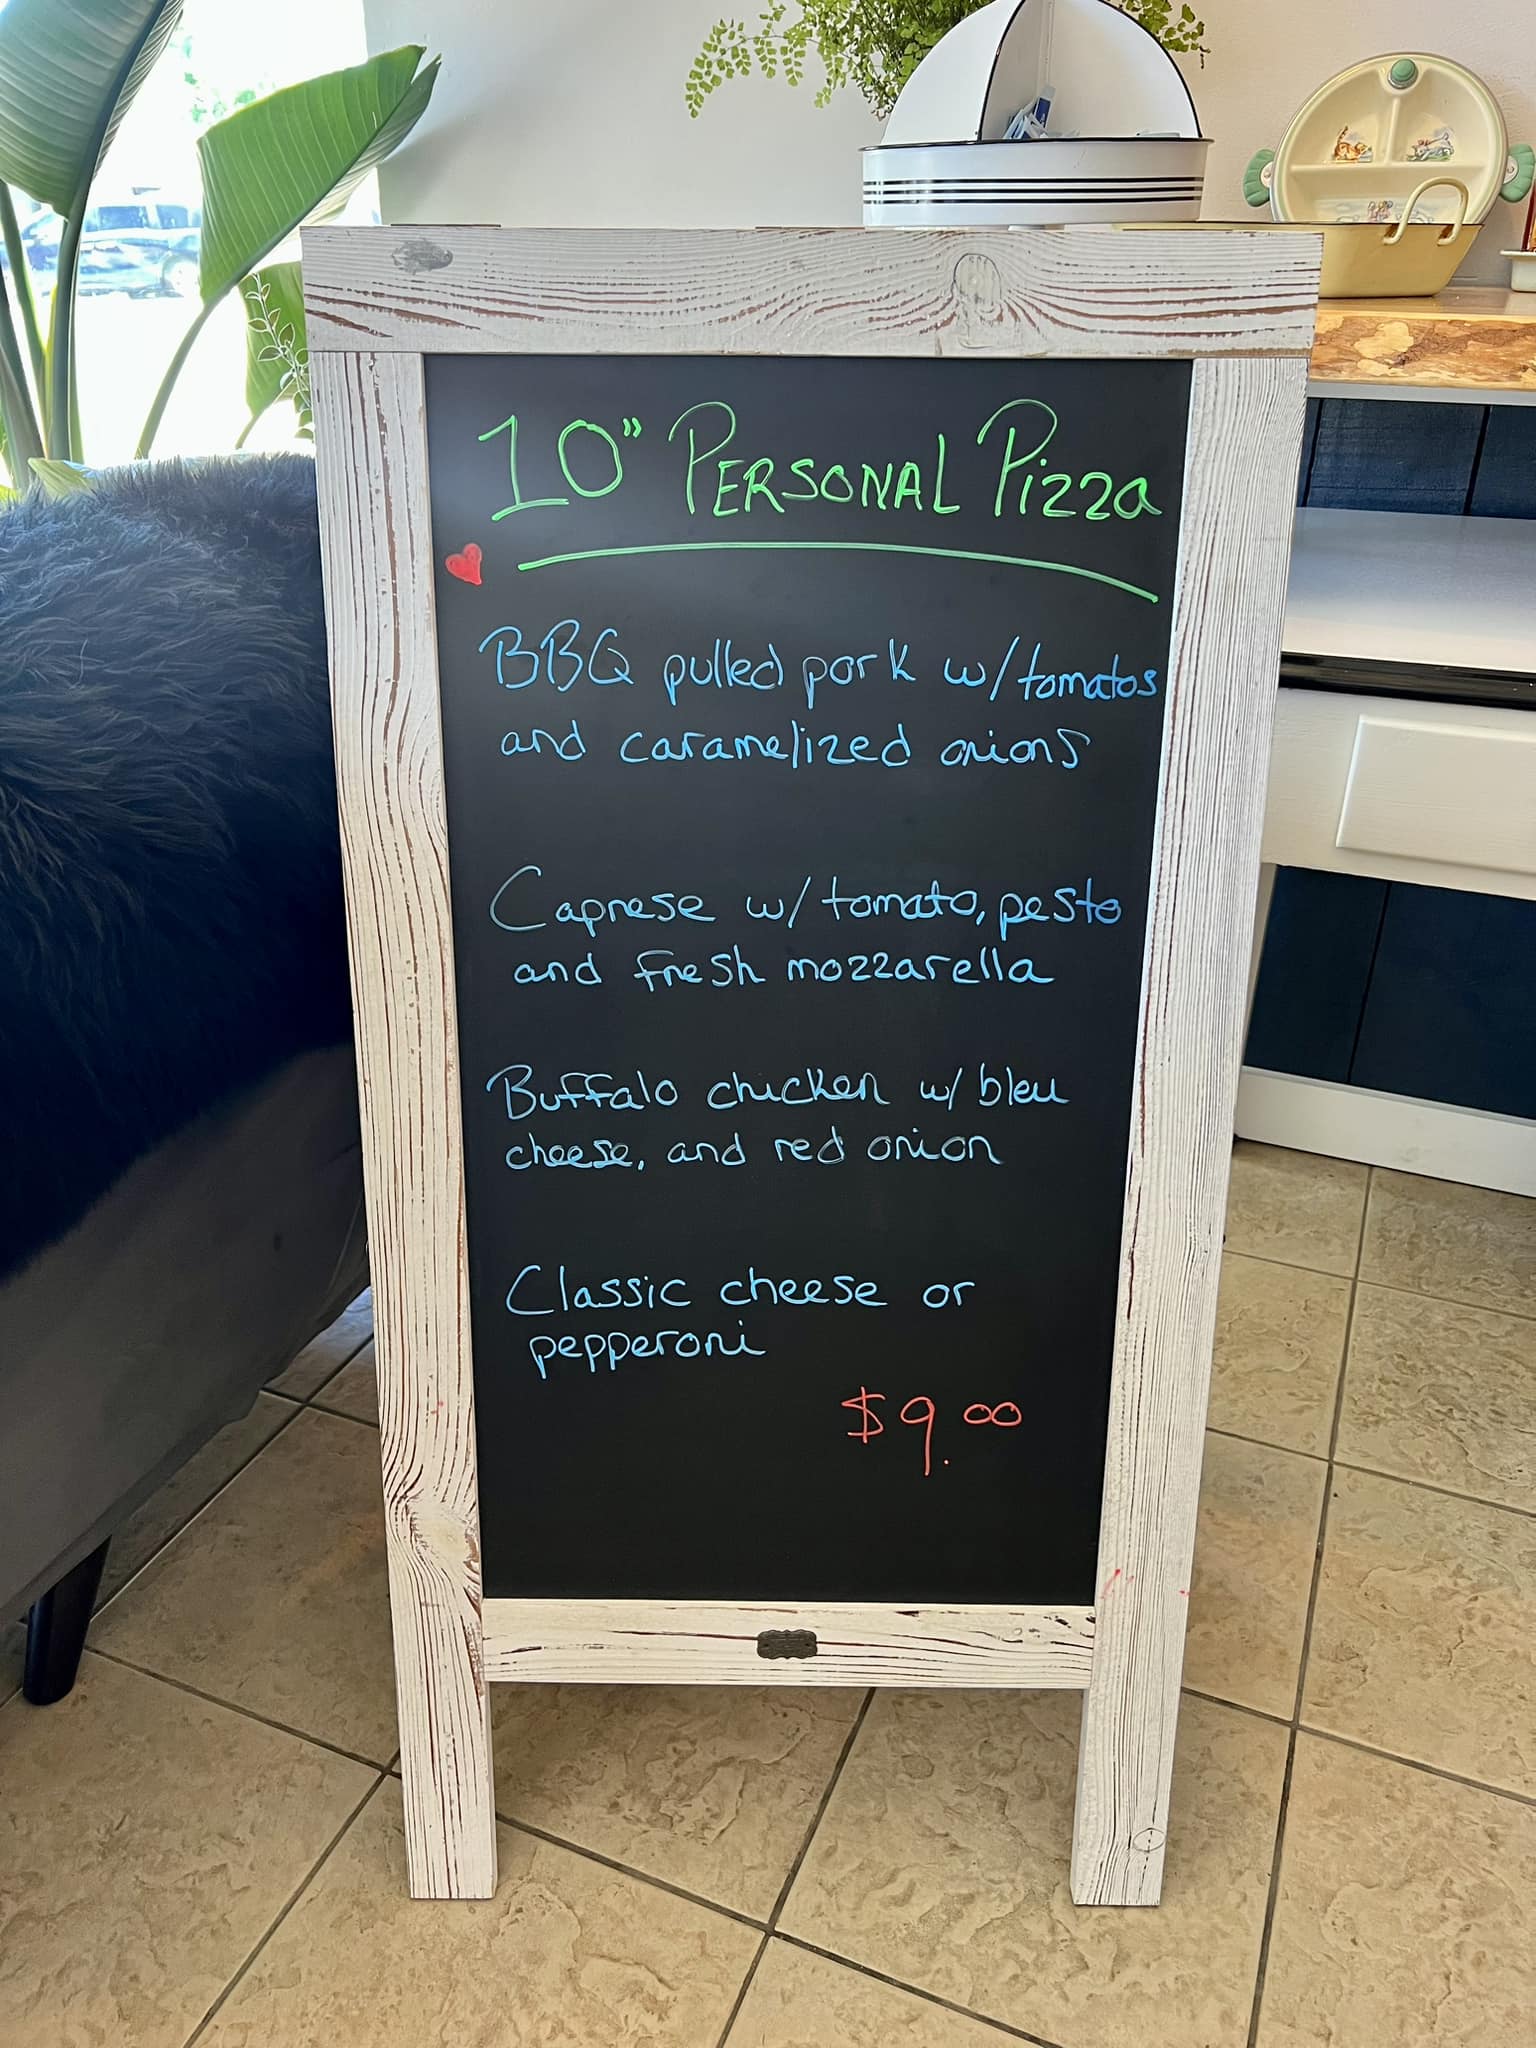 10" PERSONAL Pizza
BBQ pulled pork w/tomatos
and caramelized onions
Caprese w/tomato, pesto
and fresh mozzarella
Buffalo chicken w/ bleu
cheese, and red onion
Classic cheese or
pepperoni
$9.00